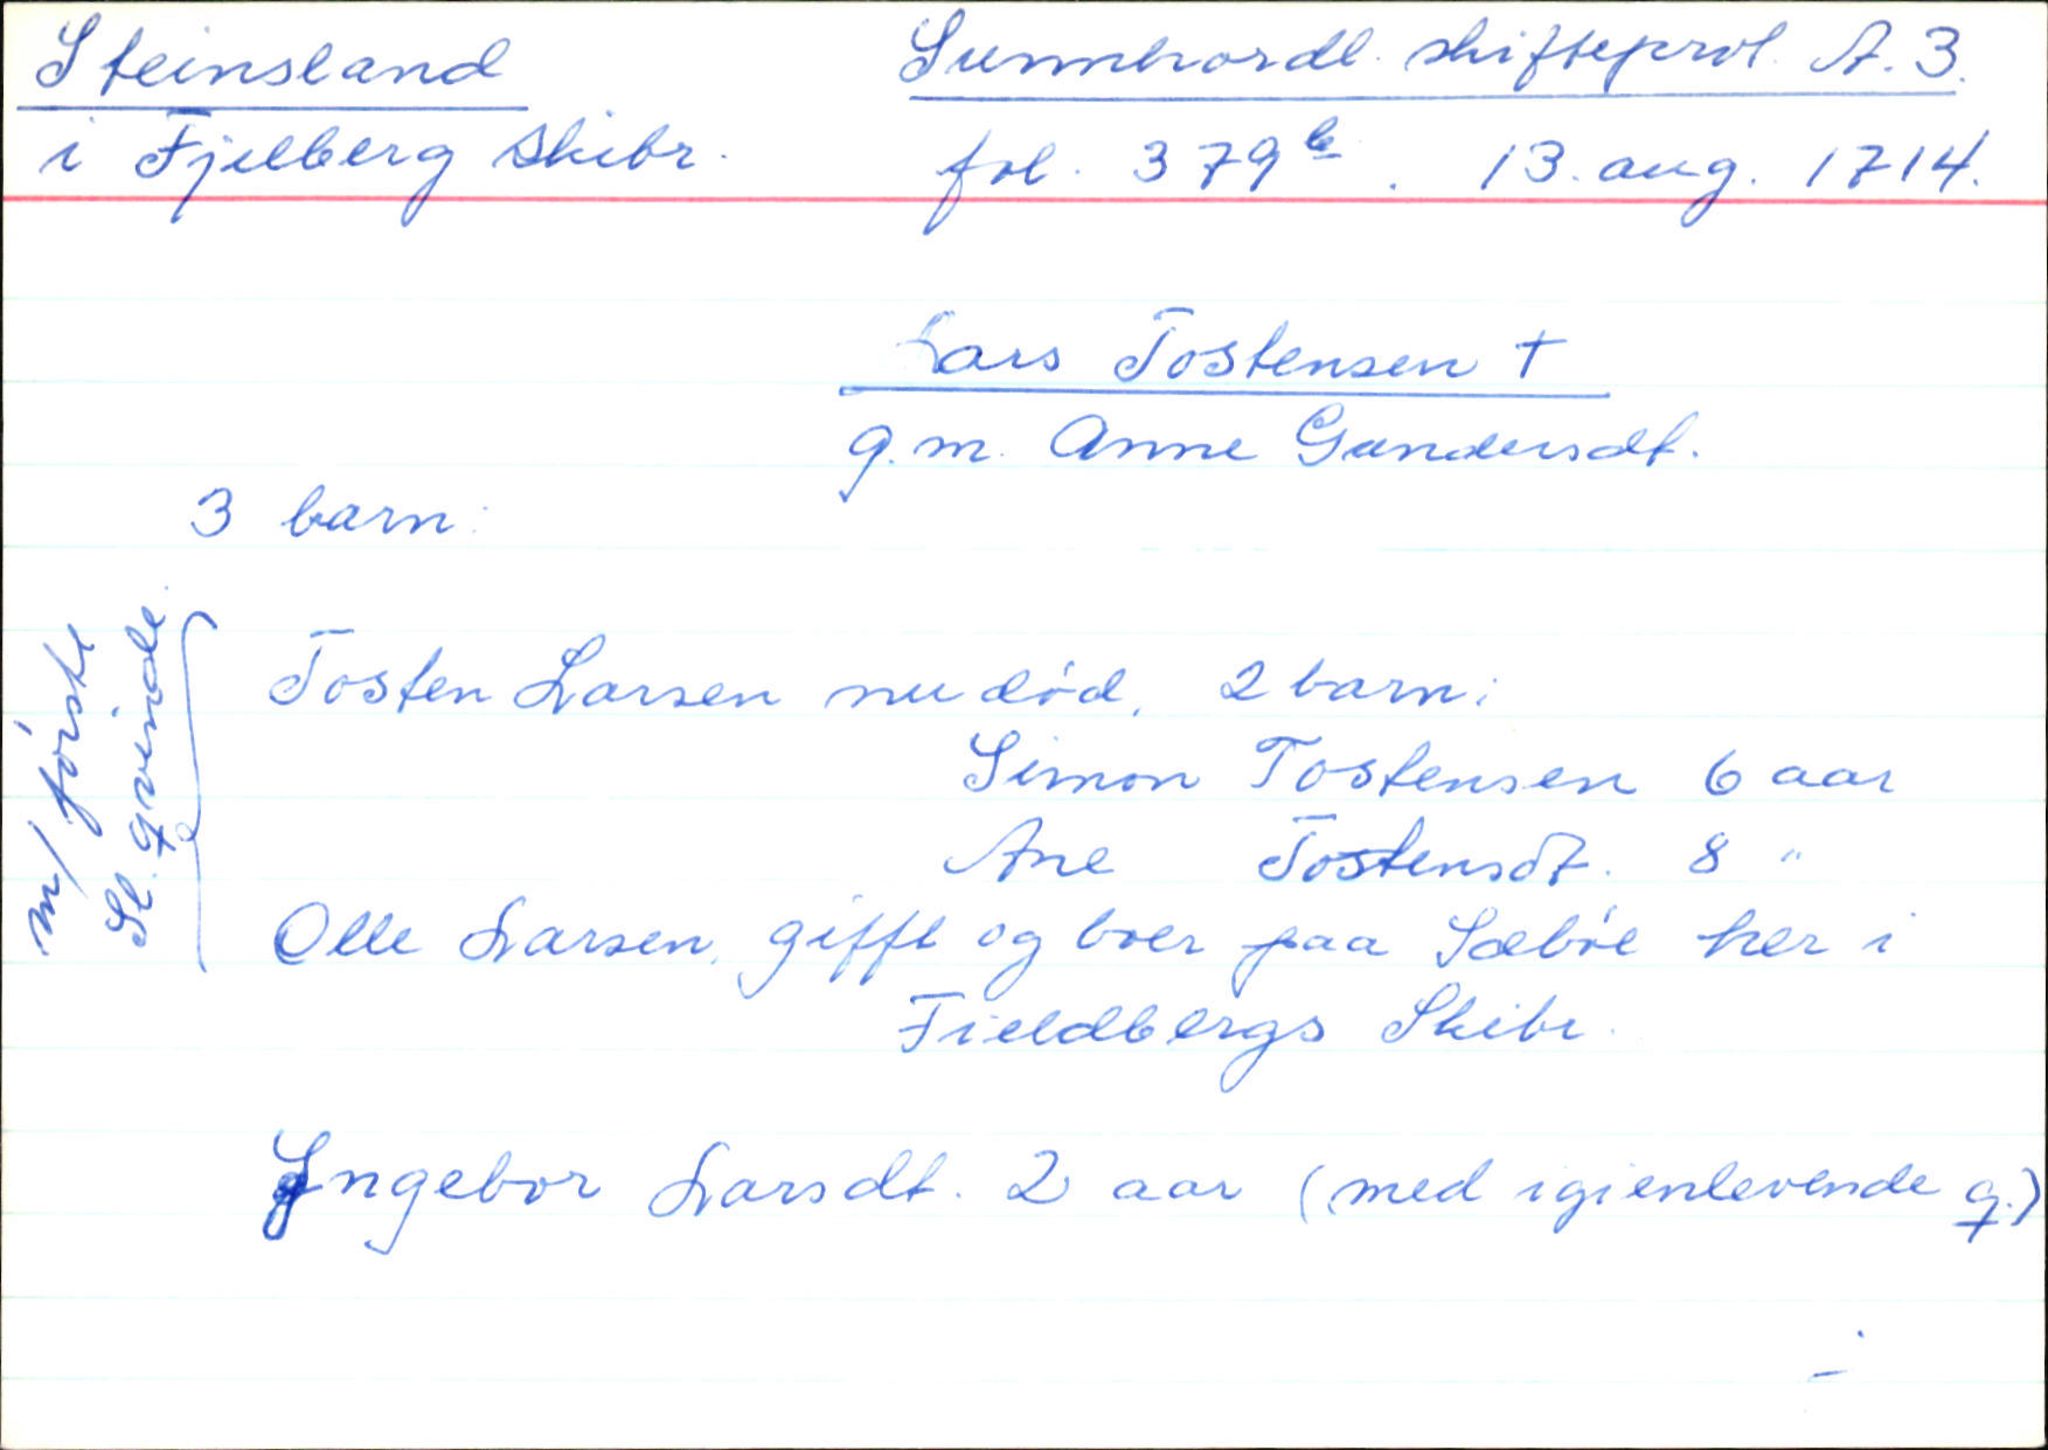 Steinsland
Sunnhordl. skifteprol. A. 3.
i Fjelberg Skibr.
fol. 379b. 13. aug. 1714.
Lars Tostensen †
g.m. Anne Gundersdt.
3 barn:
m/ første
Sl. qvinde.
Tosten Larsen nu død, 2 barn:
Simon Tostensen 6 aar
Ane Tostensdt. 8 "
Olle Larsen, gifft og boer paa Sæbøe her i
Fieldbergs Skibr.
Ingebor Larsdt. 2 aar (med igienlevende q.)